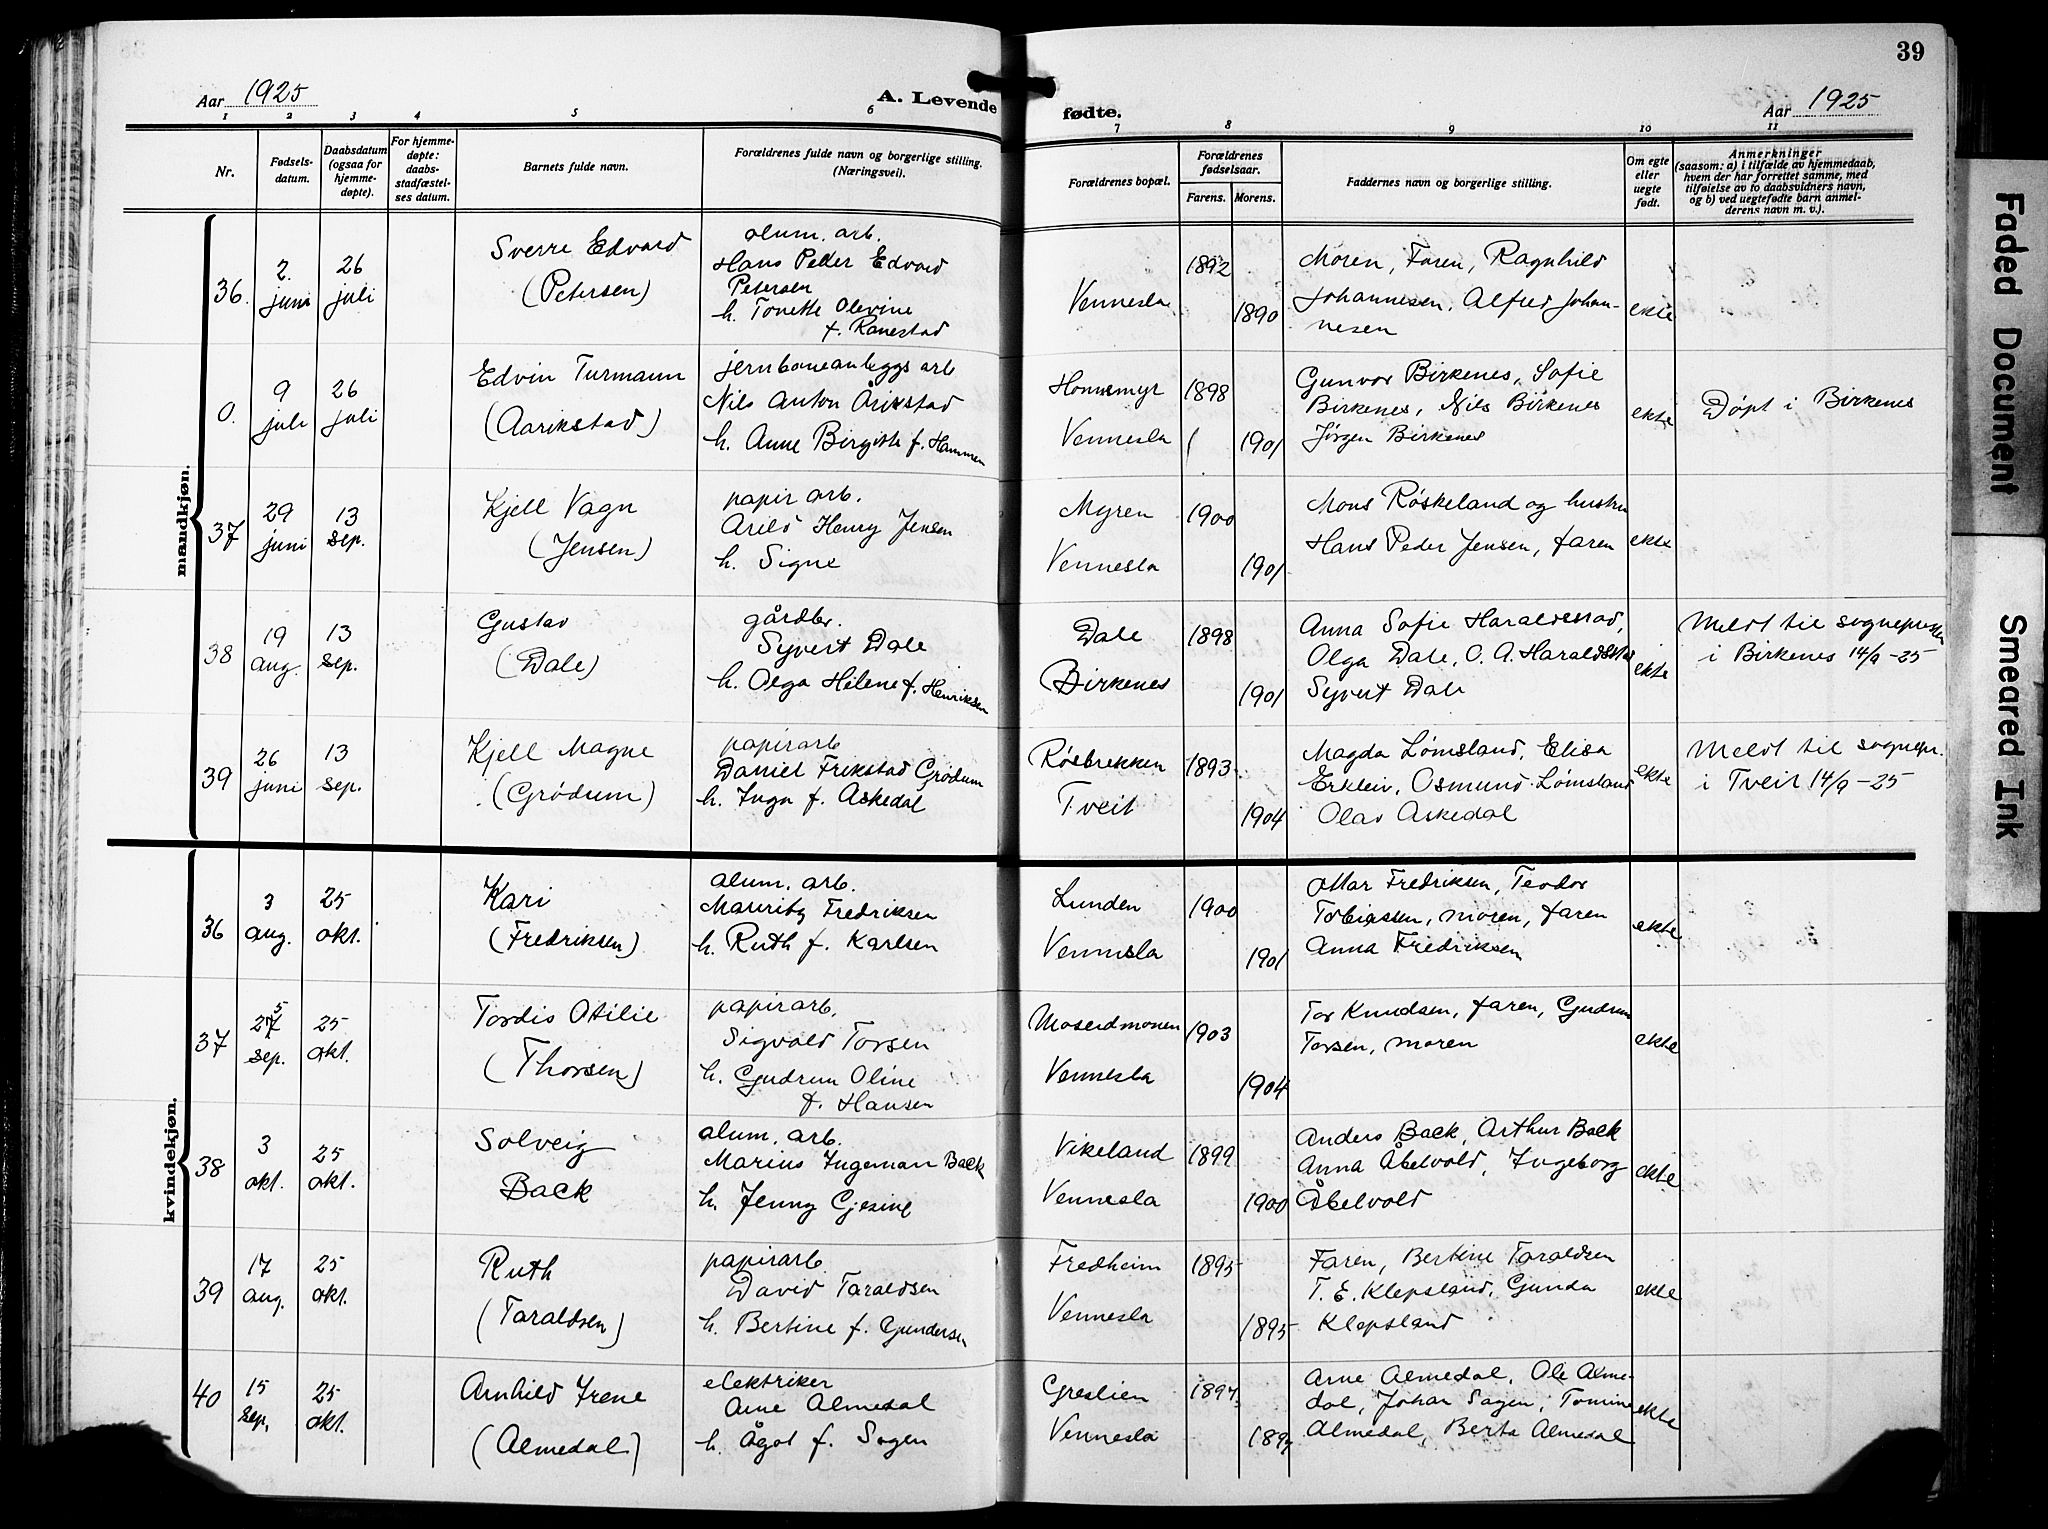 39
Aar 1925
A. Levende
fødte.
Aar 1925
1 2 3 4 5 6 7 8 9 10 11
Nr.
Fødsels-
datum.
Daabsdatum
(ogsaa for
hjemme-
døpte).
For hjemme-
døpte:
daabs-
stadfæstel-
ses datum.
Barnets fulde navn.
Forældrenes fulde navn og borgerlige stilling.
(Næringsvei).
Forældrenes bopæl.
Forældrenes
fødselsaar.
Farens. Morens.
Faddernes navn og borgerlige stilling.
Om egte
eller
uegte
født.
Anmerkninger
(saasom: a) i tilfælde av hjemmedaab,
hvem der har forrettet samme, med
tilføielse av to daabsvidners navn,
og b) ved uegtefødte barn anmel-
derens navn m. v.).
mandkjøn.
36.
2.
juni
26
juli
Sverre Edvard
(Petersen)
alum. arb.
Hans Peder Edvard
Petersen
h. Tonette Olevine
f. Ranestad
Vennesla
1892
1890
Moren, Faren, Ragnhild
Johannesen, Alfred Johan-
nesen
ekte
0.
9
juli
26
juli
Edvin Turmann
(Aarikstad)
jernbaneanleggs arb
Nils Anton Årikstad
h. Anne Birgitte f. Hammen
Honnemyr
Vennesla
1898
1901
Gunvor Birkenes, Sofie
Birkenes, Nils Birkenes
Jørgen Birkenes
ekte
Døpt i Birkenes
37
29
juni
13
sep.
Kjell Vagn
(Jensen)
papir arb.
Arild Henry Jensen
h. Signe
Myren
Vennesla
1900
1901
Mons Røskeland og hustru
Hans Peder Jensen, faren
ekte
38
19
aug.
13
sep.
Gustav
(Dale)
gårdbr.
Syvert Dale
h. Olga Helene f. Henriksen
Dale
Birkenes
1898
1901
Anna Sofie Haraldsstad,
Olga Dale, O. A. Haraldstad
Syvert Dale
ekte
Meldt til sognepresten
i Birkenes 14/9-25
39
26
juni
13
sep.
Kjell Magne
(Grødum)
papirarb
Daniel Frikstad Grødum
h. Inga f. Askedal
Røsbrekken
Tveit
1893
1904
Magda Lømsland, Elisa
Erkleiv, Osmund Lømsland
Olav Askedal
ekte
Meldt til sognepr.
i Tveit 14/9-25
kvindekjøn.
36
3
aug.
25
okt.
Kari
(Fredriksen)
alum. arb.
Mauritz Fredriksen
h. Ruth f. Karlsen
Lunden
Vennesla
1900
1901
Ottar Fredriksen, Teodor
Tobiassen, moren, faren
Anna Fredriksen
ekte
37
5
27
sep.
25
okt.
Tordis Otilie
(Thorsen)
papirarb.
Sigvald Torsen
h. Gudrun Oline
f. Hansen
Moseidmonen
Vennesla
1903
1904
Tor Knudsen, faren, Gudrun
Torsen, moren
ekte
38
3
okt.
25
okt.
Solveig
Back
alum. arb.
Marius Ingeman Back
h. Jenny Gjesine
Vikeland
Vennesla
1899
1900
Anders Back, Arthur Back
Anna Åbelvold, Ingeborg
Åbelvold
ekte
39
17
aug.
25
okt.
Ruth
(Taraldsen)
papirarb
David Taraldsen
h. Bertine f. Gundersen
Fredheim
Vennesla
1895
1895
Faren, Bertine Taraldsen
T. E. Klepsland, Gunda
Klepsland
ekte
40
15
sep.
25
okt.
Arnhild Irene
(Almedal)
elektriker
Arne Almedal
h. Ågot f. Sagen
Greslien
Vennesla
1897
1897
Arne Almedal, Ole Alme-
dal, Johan Sagen, Tomine
Almedal, Berta Almedal
ekte
Faded Document
Smeared Ink